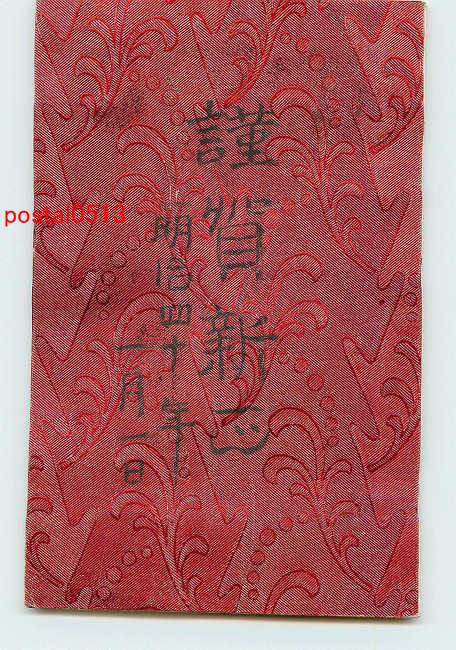 謹賀新正
明治四十年
一月一日
postal0513